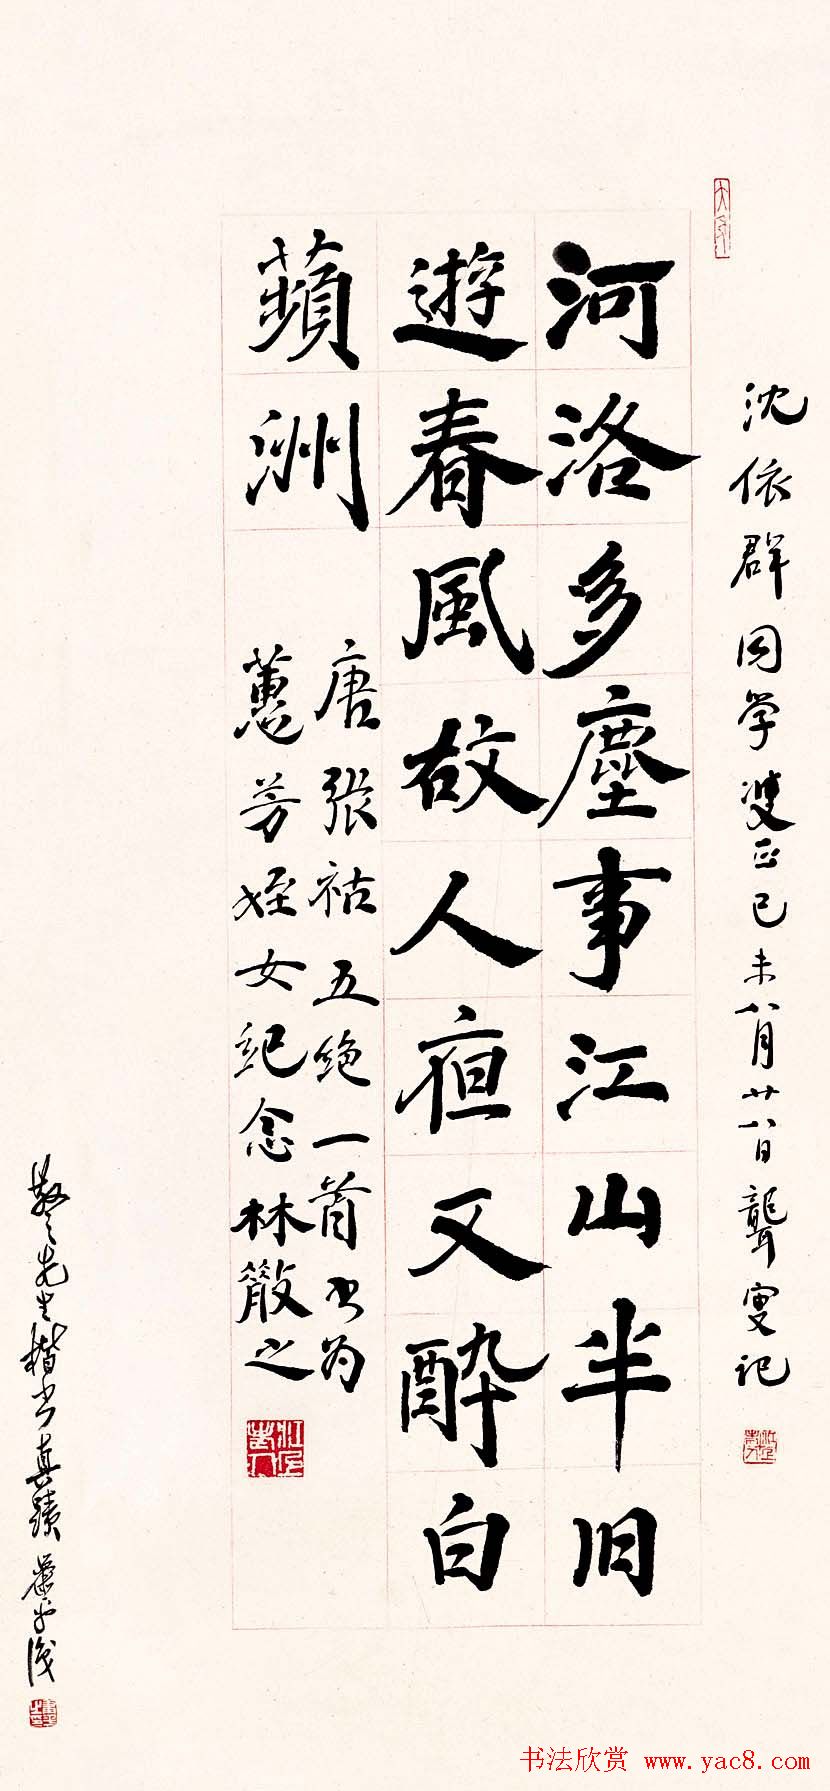 沈依群同学双正己未八月廿八日聋叟记
河洛多塵事江山半旧
遊春風故人夜又醉白
蘋洲
唐張祜五绝一首书为
蕙芳姪女纪念林散之
散之先生楷书真蹟
书法欣赏 www.yac8.com